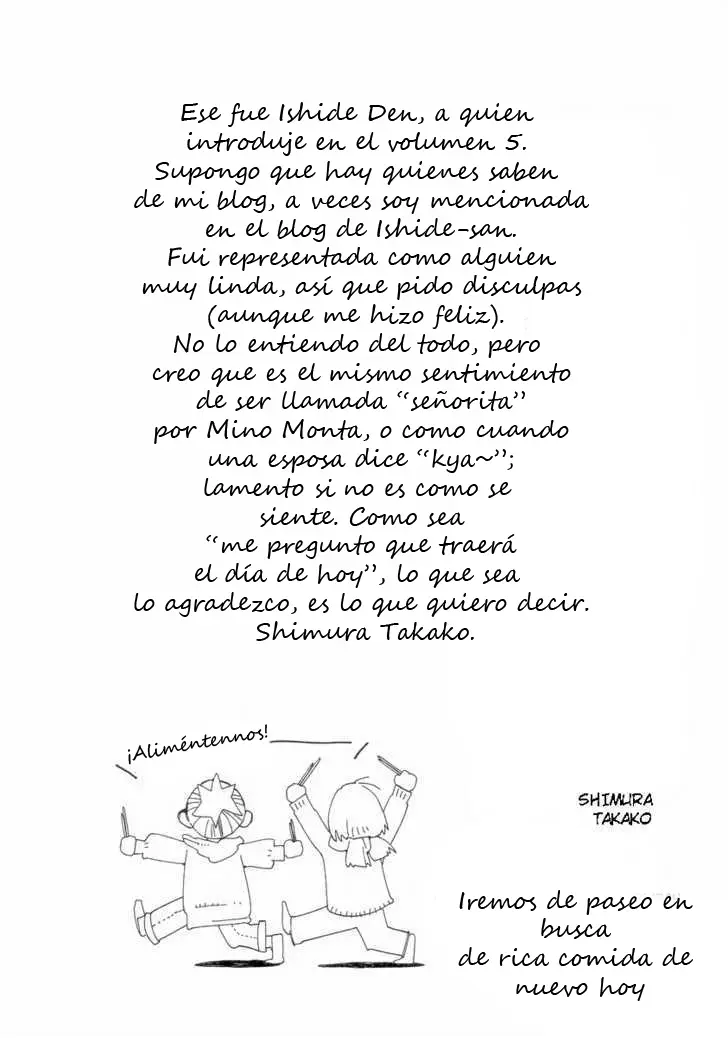 Ese fue Ishide Den, a quien
introduje en el volumen 5.
Supongo que hay quienes saben
de mi blog, a veces soy mencionada
en el blog de Ishide-san.
Fui representada como alguien
muy linda, así que pido disculpas
(aunque me hizo feliz).
No lo entiendo del todo, pero
creo que es el mismo sentimiento
de ser llamada “señorita”
por Mino Monta, o como cuando
una esposa dice “kya~”;
lamento si no es como se
siente. Como sea
“me pregunto que traerá
el día de hoy”, lo que sea
lo agradezco, es lo que quiero decir.
Shimura Takako.
¡Aliméntennos!
SHIMURA
TAKAKO
Iremos de paseo en
busca
de rica comida de
nuevo hoy